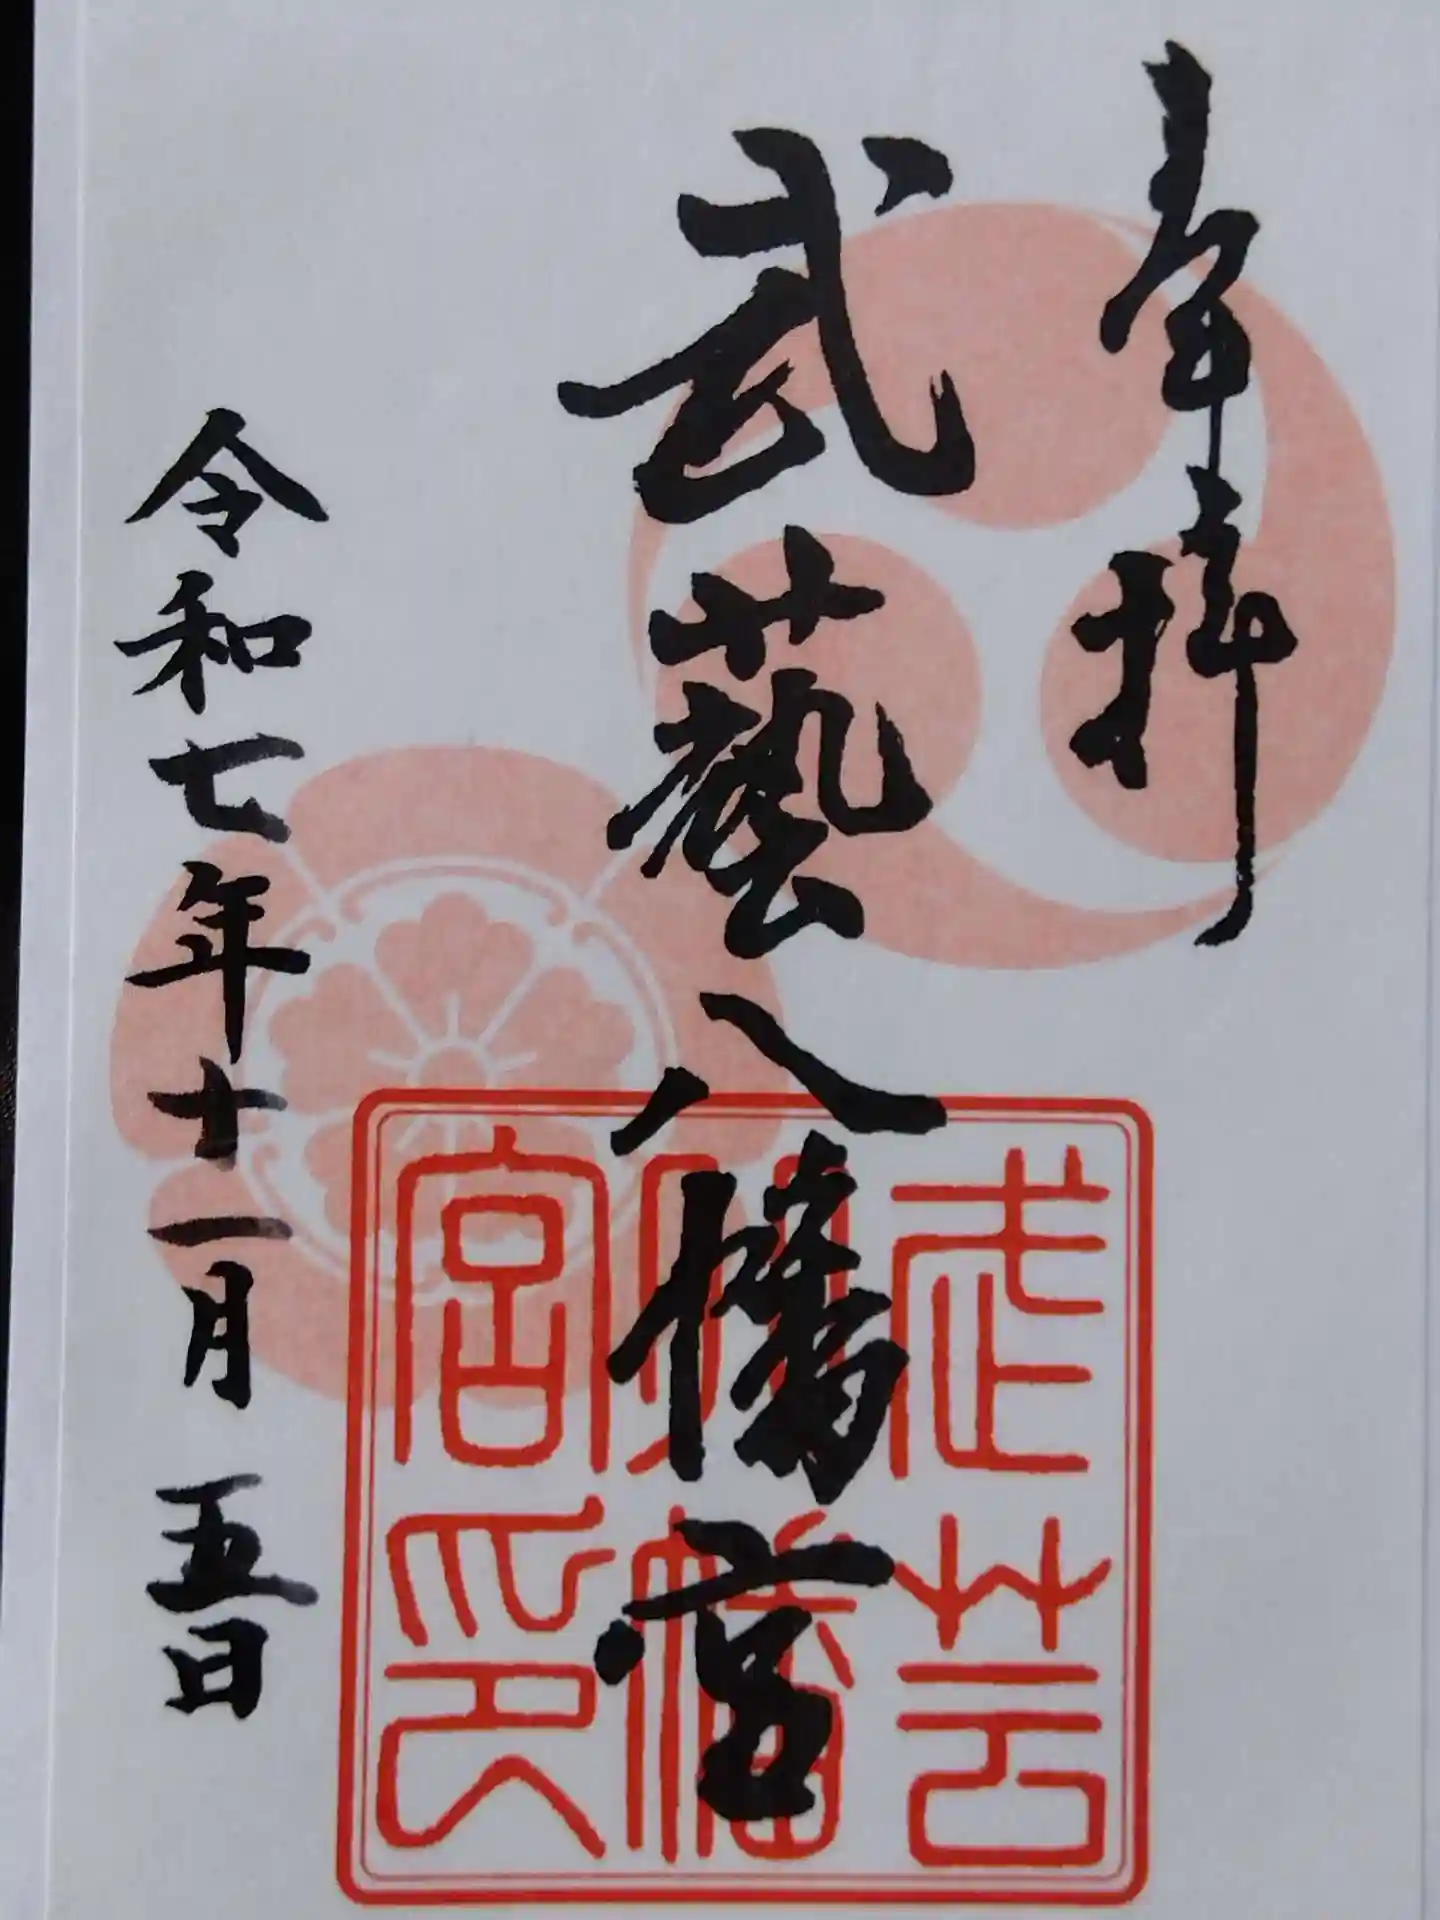 奉拝
武藝八幡宮
令和七年十一月五日
武芸
八幡
宮印